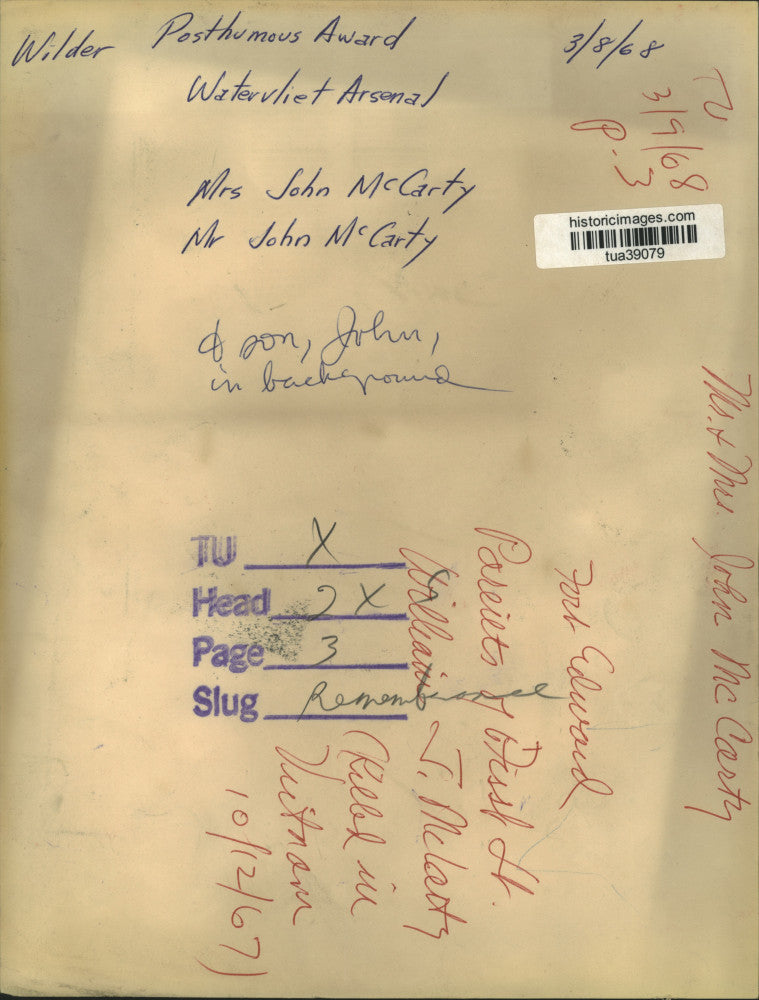 Wilder Posthumous Award 3/8/68
Watervliet Arsenal
Mrs John McCarty
Mr John McCarty
& son, John,
in background
TU
3/9/68
p. 3
historicimages.com
tua39079
TU X
Head 2 X
Page 3
Slug Remembrance
Mr. & Mrs. John McCarty
Fort Edward
Parents of First Lt.
William J. McCarty
(Killed in
Vietnam
10/12/67)